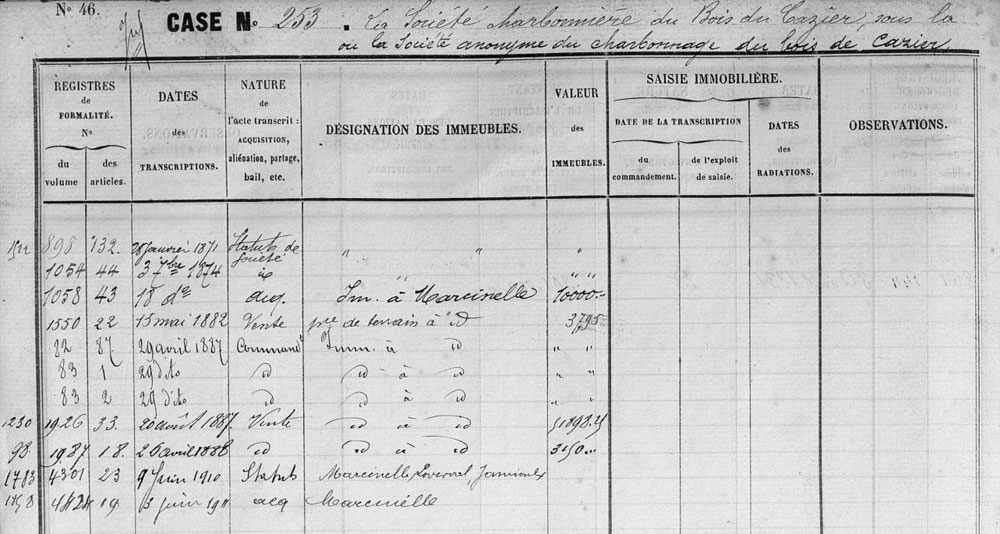 No 46.
CASE No 253. La Société charbonnière du Bois du Cazier, sous la
ou la Société anonyme du charbonnage du bois de Cazier.
REGISTRES de FORMALITÉ. No
du volume
des articles.
DATES des TRANSCRIPTIONS.
NATURE de l'acte transcrit : ACQUISITION, aliénation, partage, bail, etc.
DÉSIGNATION DES IMMEUBLES.
VALEUR des IMMEUBLES.
SAISIE IMMOBILIÈRE.
DATE DE LA TRANSCRIPTION
du commandement.
de l'exploit de saisie.
DATES des RADIATIONS.
OBSERVATIONS.
898 132 28 Janvier 1871 Statuts de Société " " "
1054 44 3 7bre 1874 id " " "
1058 43 18 do acq. Im. à Marcinelle 10000.-
1550 22 15 mai 1882 Vente pie de terrain à id 3,795
82 87 29 avril 1887 Command Imm. à id " "
83 1 29 dito id id à id " "
83 2 29 dito id id à id " "
1230 1926 33. 20 août 1887 Vente id à id
98. 1987 18. 26 avril 1888 id id à id 3150
1783 4301 23 9 Juin 1910 Statuts Marcinelle, Loverval, Jamioulx
19 3 juin 1911 acq Marcinelle